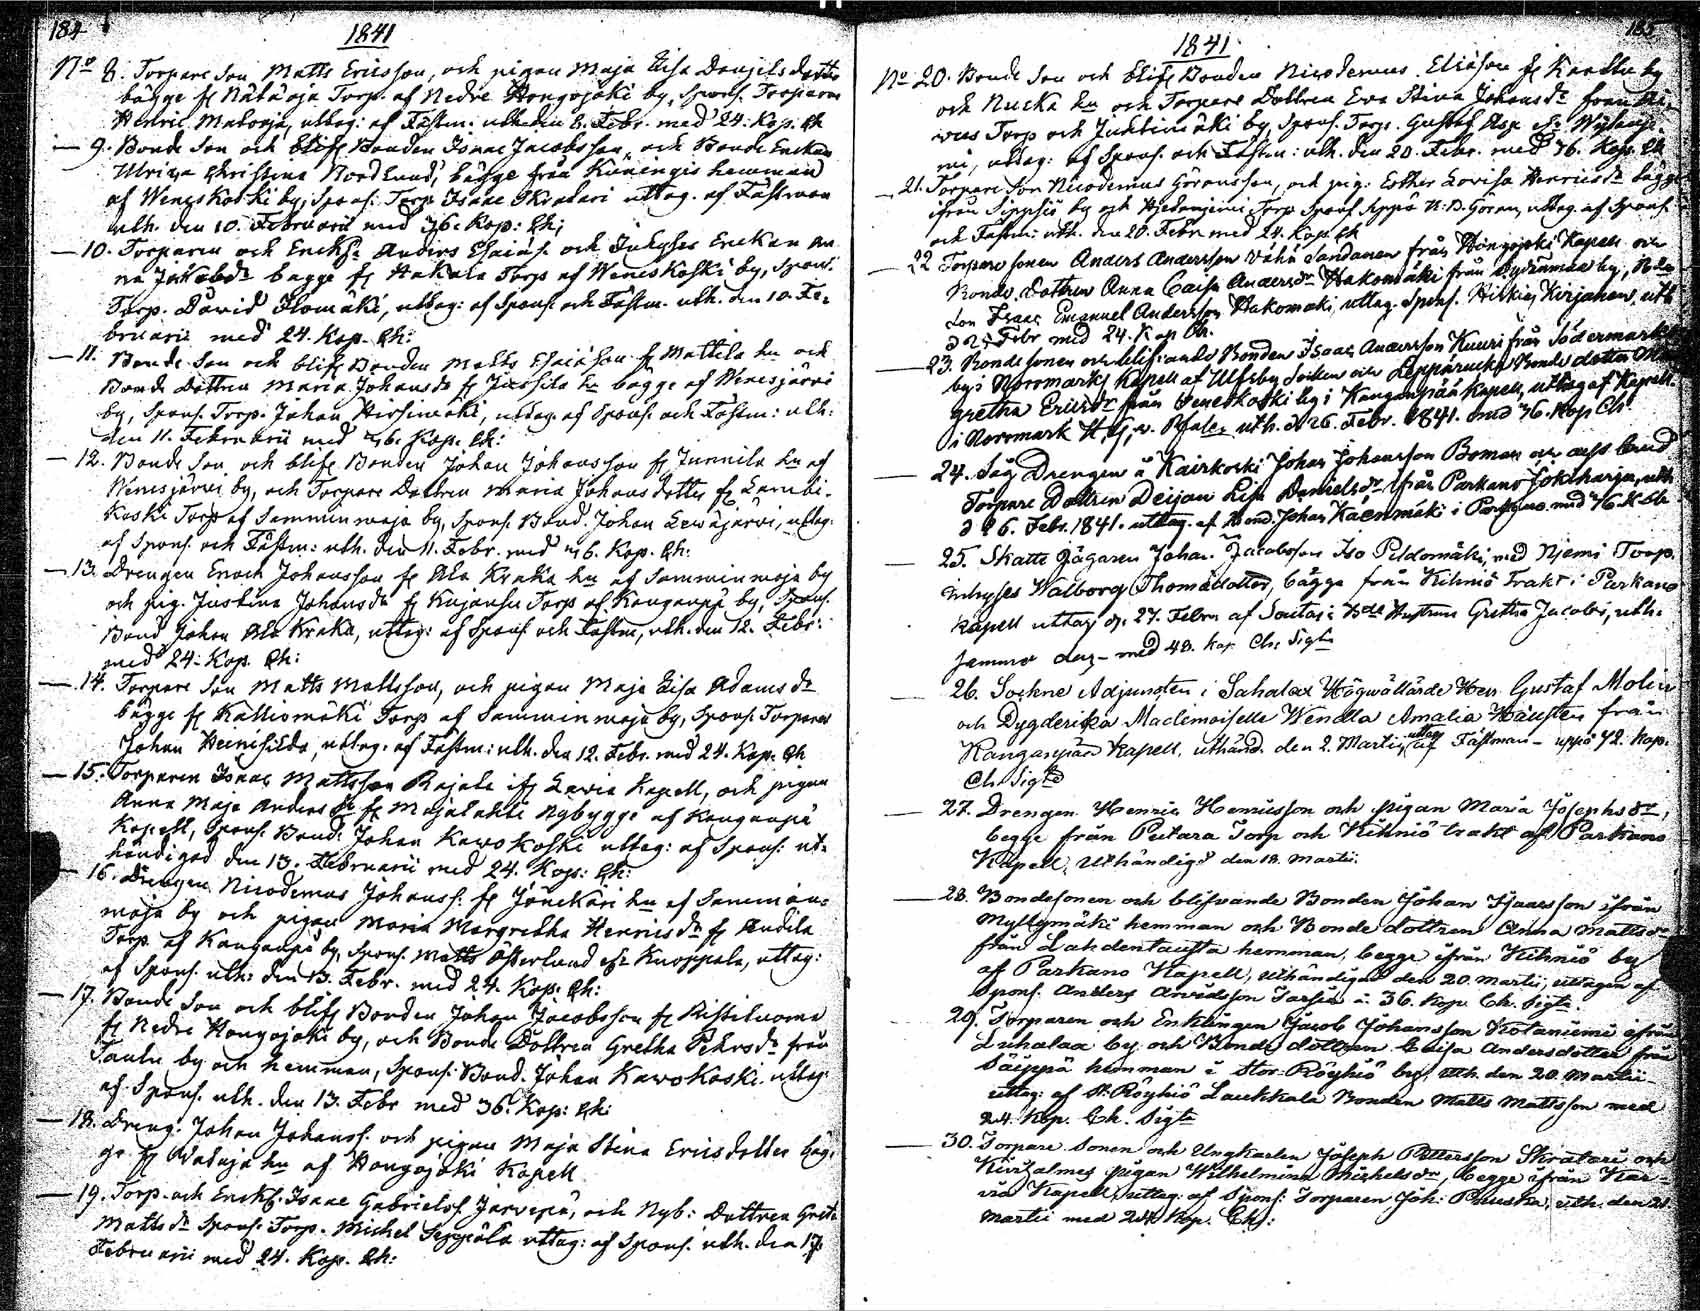 184
1841
No 8. Torpare Son Matts Ericsson, och pigan Maja Lisa Danjelsdotter
bägge fr Nätäoja Torp af Nedre Hongojoki by, Spons. Torparen
Henric Matooja, uttag: af Fästm: uth. den 8. Febr. med 24. Kop. Ch
— 9. Bonde Son och blifv Bonden Isaac Jacobsson, och Bonde Enckan
Ulrica Christina Nordlund, bägge från Kuningis hemman
af Weneskoski by, Spons. Torp. Isaac Skatari uttag. af Fästman
uth. den 10. Februarii med 36. Kop: Ch;
— 10. Torparen och Enckl. Anders Esaias. och Inhyses Enckan An
na Jacobsdr bägge fr Hakala Torp af Weneskoski by, Spons.
Torp. David Ilomäki, uttag: af Spons. och Fästm. uth. den 10. Fe-
bruarii med 24. Kop. Ch:
— 11. Bonde Son och blifv Bonden Matts Esaiasson fr Mattila hn och
Bonde Dottren Maria Johansdr fr Jussila hn bägge af Wenesjärvi
by, Spons. Torp. Johan Hirsimäki, uttag. af Spons. och Fästm: uth:
den 11. Februarii med 36. Kop. Ch:
— 12. Bonde Son och blifv Bonden Johan Johansson fr Junnila hn af
Wenesjärvi by, och Torpare Dottren Maria Johansdotter fr Lambi-
koski Torp af Samminmaja by, Spons. Bond. Johan Lewäjärvi, uttag:
af Spons. och Fästm: uth. den 11. Febr. med 36. Kop. Ch:
— 13. Drengen Enoch Johansson fr Ala Kraka hn af Samminmaja by
och pig. Justina Johansdr fr Kujansu Torp af Kangarpä by, Spons.
Bond Johan Ala Kraka, uttag: af Spons. och Fästm, uth. den 12. Febr:
med 24. Kop. Ch:
— 14. Torpare Son Matts Mattsson, och pigan Maja Lisa Adamsdr
bägge fr Kalliomäki Torp af Samminmaja by, Spons. Torparen
Johan Heinisilda, uttag. af Fästm: uth. den 12. Febr. med 24. Kop. Ch
— 15. Torparen Isaac Mattsson Rajala ifr Lavia Kapell, och pigan
Anna Maja Andersdr fr Majalahti Nybygge af Kangarpä
Kapell, Spons. Bond. Johan Kawokoski uttag: af Spons: ut-
händigad den 13. Februarii med 24. Kop: Ch:
— 16. Drengen Nicodemus Johanss. fr Jönckäri hn af Sammin-
maja by och pigan Maria Margretha Henricsdr fr Andila
Torp. af Kangarpä by, Spons. Matts Österlund ifr Knoppala, uttag:
af Spons. uth: den 13. Febr. med 24. Kop. Ch:
— 17. Bonde Son och blifv Bonden Johan Jacobsson fr Ristiluoma
fr Nedre Hongojoki by, och Bonde Dottren Gretha Pehrsdr från
Taulu by och hemman, Spons. Bond. Johan Kawokoski uttag
af Spons. uth. den 13. Febr med 36. Kop: Ch:
— 18. Dreng. Johan Johanss. och pigan Maja Stina Ericsdotter bäg-
ge fr Wataja hn af Hongojoki Kapell
— 19. Torp. och Enckl. Isaac Gabrielss. Järvepä, och Nyb: Dottren Greta
Mattsdr Spons. Torp. Michel Seppälä uttag: af Spons. uth. den 17
Februarii med 24. Kop. Ch:
185
1841.
No 20. Bonde Son och blifv Bonden Nicodemus Eliasson fr Karttu by
och Nucka hn och Torpare Dottren Eva Stina Johansdr från
Torp och by, Spons. Torp. Gustaf
uttag: af Spons. och Fästm: uth. den 20. Febr. med 36. Kop. Ch
— 21. Torpare Son Nicodemus Göransson, och pig: Esther Lovisa Henricsdr bägge
ifrån by och Torp Spons. Göran, uttag. af Spons.
och Fästm: uth. den 20. Febr med 24. Kop. Ch
— 22 Torpare sonen Anders Andersson Vähä Sandanen från Hongojoki Kapell och
Bonde dottren Anna Caisa Andersdr Hakomäki från by,
son Isaac Emanuel Andersson Hakomäki, uttag. Spons. Kirjanen, uth
d 25 Febr med 24. Kop Ch.
— 23. Bonde sonen och blifvande Bonden Isaac Andersson Kuuri från Södermark
by i Norrmarks Kapell af Ulfsby Socken och Bonde dotter Mar
gretha Ericsdr från Leneskoski by i Kangarpää Kapell, uttag af Kapell.
i Norrmark uth. d 26. Febr. 1841. med 36. Kop Ch.
— 24. Såg Drengen å Kairkoski Johan Johansson Boman och dess brud
Torpare Dottren Deijan Lisa Danielsdr ifrån Parkano uth
d 26. Febr. 1841. uttag. af Bond. Johan Kaenmäki i Parkano med 36.
— 25. Skatte Jägaren Johan Jacobsson Iso Peldomäki, med Njemi Torp.
inhyses Walborg Thomædotter, bägge från Kihniö Trakt i Parkano
Kapell uttag d. 27. Febru af Hustrun Greta Jacobs, uth.
samma dag – med 48. kop Ch. Sigt
— 26. Sockne Adjuncten i Sahalax Högvällärde Herr Gustaf Molin
och Dygderika Mademoiselle Wendla Amalia Hausten från
Kangaspää Kapell, uthänd. den 2. Martii, uttag af Fästman – uppå 72. Kop.
Ch Sigtd
— 27. Drengen Henric Henricsson och pigan Maria Josephsdr,
begge från Pietara Torp och Kihniö trakt af Parkano
Kapell, Uthändigt den 18. Martii.
— 28. Bondesonen och blifvande Bonden Johan Isaacsson ifrån
Myllymäki hemman och Bonde dottren Anna Mattsdr
från Lahdentausta hemman, begge ifrån Kihniö by
af Parkano Kapell, uthändigat den 20. Martii, uttagen af
Spons. Anders Arvidsson Tarsia à 36. Kop. Ch. Sigt.
— 29. Torparen och Enklingen Jacob Johansson Kotaniemi ifrån
Luhalax by och Bonde dottren Caisa Andersdotter från
Säippä hemman i Stor-Röyhiö by, uth. den 20. Martii
uttag: af St. Röyhiö Laukkala Bonden Matts Mattsson med
24. Kop. Ch. Sigt
— 30. Torpare Sonen och Ungkarlen Joseph Pettersson Skratari och
Kivisalmes pigan Wilhelmina Michelsdr, begge ifrån Kar-
via Kapell, uttag: af Spons: Torparen Joh: Pauska, uth. den 21.
Martii med 24 Kop. Ch;